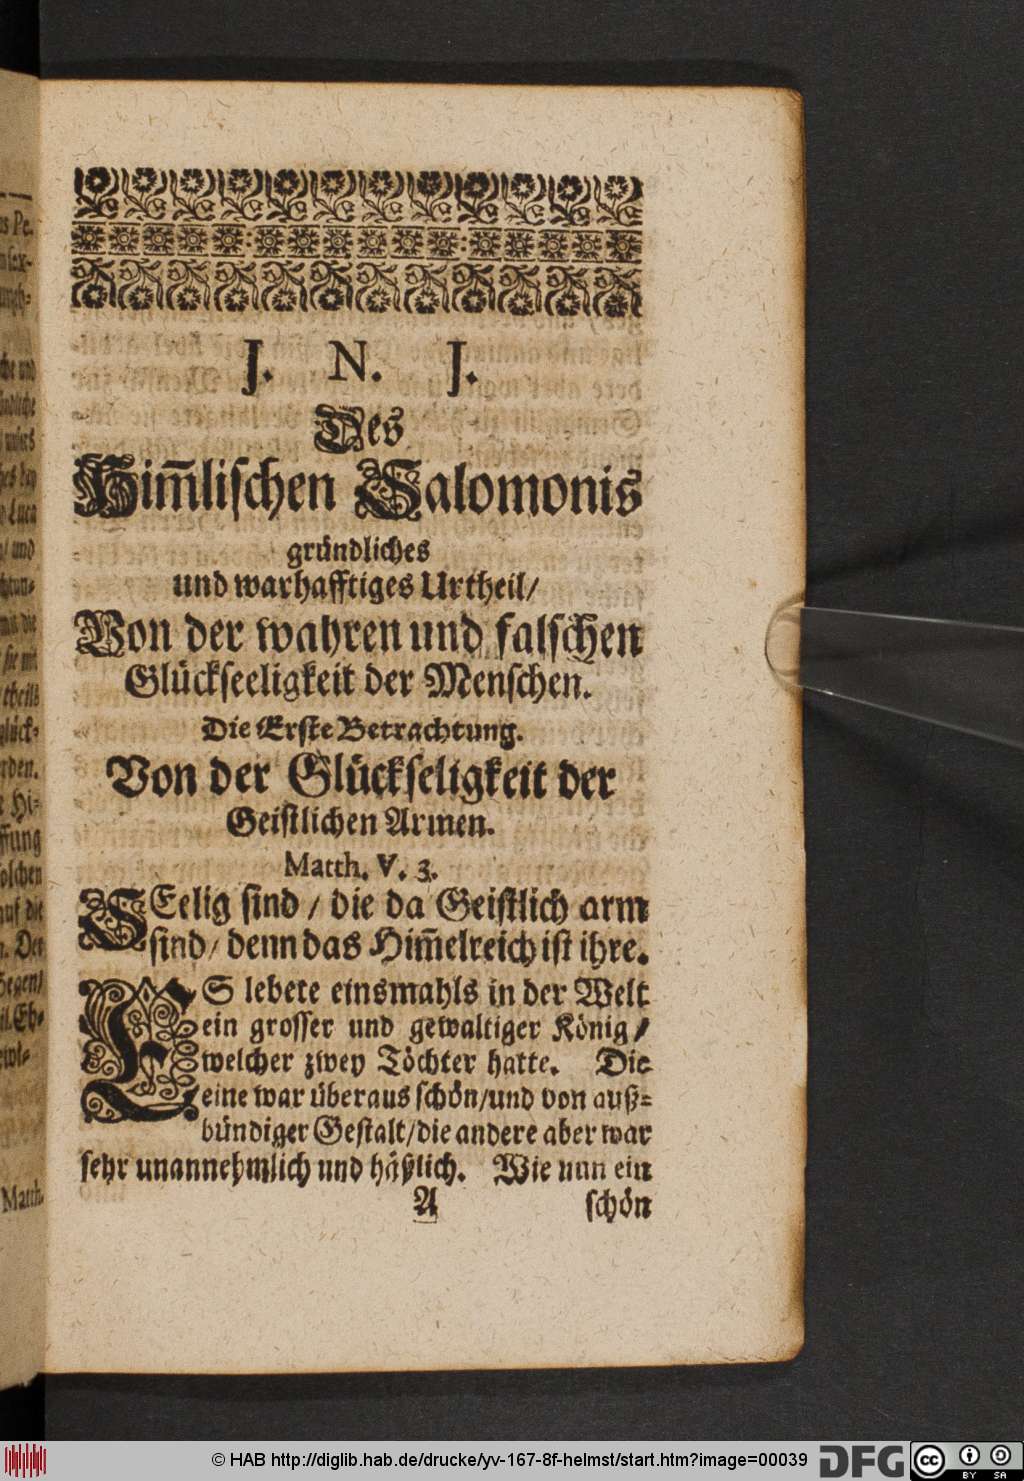 J. N. J.
Des
Him̃lischen Salomonis
gründliches
und warhafftiges Urtheil/
Von der wahren und falschen
Glückseeligkeit der Menschen.
Die Erste Betrachtung.
Von der Glückseligkeit der
Geistlichen Armen.
Matth. V. 3.
SEelig sind / die da Geistlich arm
sind/ denn das Him̃elreich ist ihre.
ES lebete einsmahls in der Welt
ein grosser und gewaltiger König/
welcher zwey Töchter hatte. Die
eine war überaus schön/und von auß=
bündiger Gestalt/die andere aber war
sehr unannehmlich und häßlich. Wie nun ein
A schön
Matth.
© HAB http://diglib.hab.de/drucke/yv-167-8f-helmst/start.htm?image=00039 DFG cc BY SA